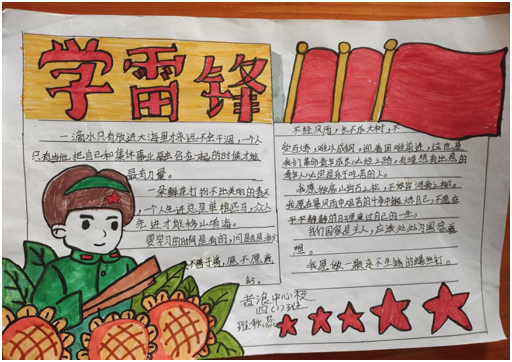 学雷锋
一滴水只有放进大海里才永远不会干涸，一个人
只有当他把自己和集体事业融合在一起的时候才能
最有力量。
一朵鲜花打扮不出美丽的春天，
个人先进总是单枪匹马，众人
先进才能移山填海。
要学习的时间是有的，问题是我们
善于挤，愿不愿意
钻。
不经风雨，长不成大树，不
我们革命青年成长必经之路，有理想有出息的
青年人必定是乐于吃苦的人。
我愿做高山岩石之松，不做岸河旁之柳。
我愿在暴风雨中艰苦的斗争中锻炼自己，不愿在
平平静静的日子里度过自己的一生。
我们国家是主人，应该处处为国家着
想。
我愿做一颗永不生锈的螺丝钉。
中心校
四(1)班
班秋蕊